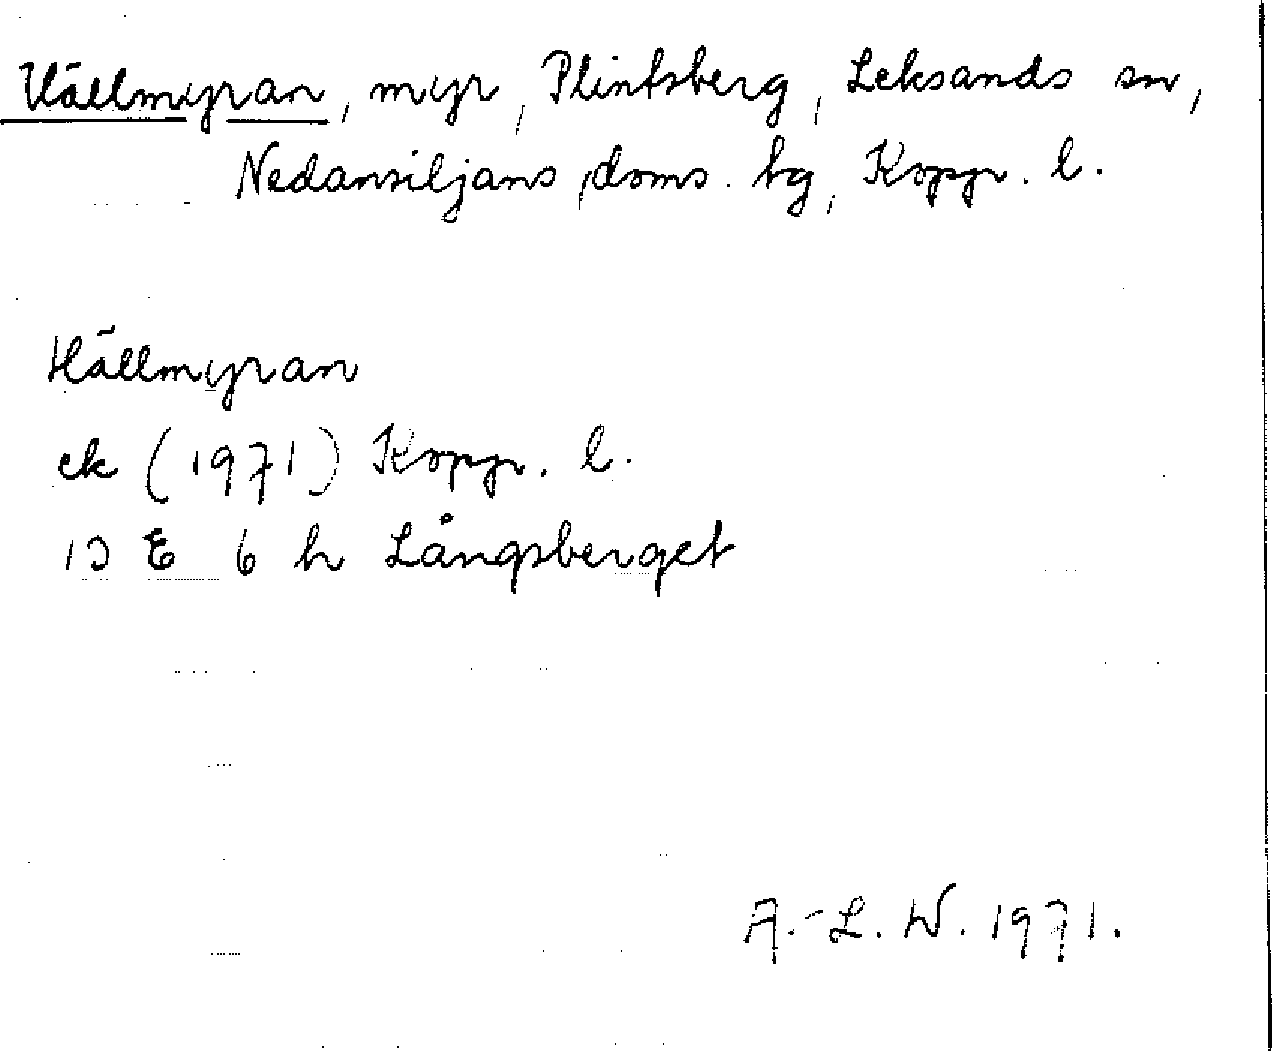 Hällmyran, myr, Plintsberg, Leksands sn,
Nedansiljans doms. tg, Kopp. l.
Hällmyran
ek (1971) Kopp. l.
13 E 6 h Långsberget
A.-L. W. 1971.